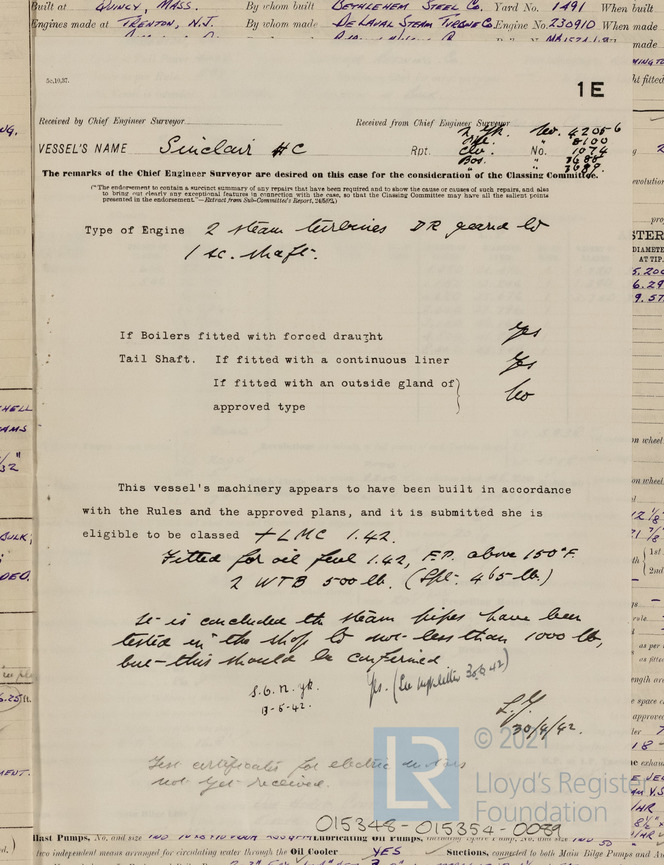 Built at QUINCY, MASS. By whom built BETHLEHEM STEEL CO. Yard No. 1491 When built
Engines made at TRENTON, N.J. By whom made DE LAVAL STEAM TURBINE CO. Engine No. 230910 When made
5c.10.37.
1E
Received by Chief Engineer Surveyor
Received from Chief Engineer Surveyor
N. Yk. No. 42056
8100
VESSEL'S NAME Sinclair HC Rpt. Cle. No. 1074
Bos. " 3686
" 3687.
The remarks of the Chief Engineer Surveyor are desired on this case for the consideration of the Classing Committee.
("The endorsement to contain a succinct summary of any repairs that have been required and to show the cause or causes of such repairs, and also
to bring out clearly any exceptional features in connection with the case, so that the Classing Committee may have all the salient points
presented in the endorsement."—Extract from Sub-Committee's Report,
Type of Engine 2 steam turbines DR geared to
1 sc. shaft.
If Boilers fitted with forced draught Yes
Tail Shaft. If fitted with a continuous liner Yes
If fitted with an outside gland of} No
approved type
This vessel's machinery appears to have been built in accordance
with the Rules and the approved plans, and it is submitted she is
eligible to be classed +LMC 1.42.
Fitted for oil fuel 1.42, F.P. above 150°F.
2 WTB 500 lb. (Spt. 465 lb.)
It is concluded the steam pipes have been
tested in the shop to not less than 1000 lb,
but this should be confirmed
Yes. (See letter 30.6.42)
S.G.N. Yk.
13-5-42.
L.Y.
30/4/42.
Test certificates for electric motors
not yet received.
LR
© 2021
Lloyd's Register
Foundation
015348-015354-0089
Ballast Pumps, No. and size Lubricating Oil Pumps,
two independent means arranged for circulating water through the Oil Cooler YES Suctions, connected to both Main Bilge Pumps and